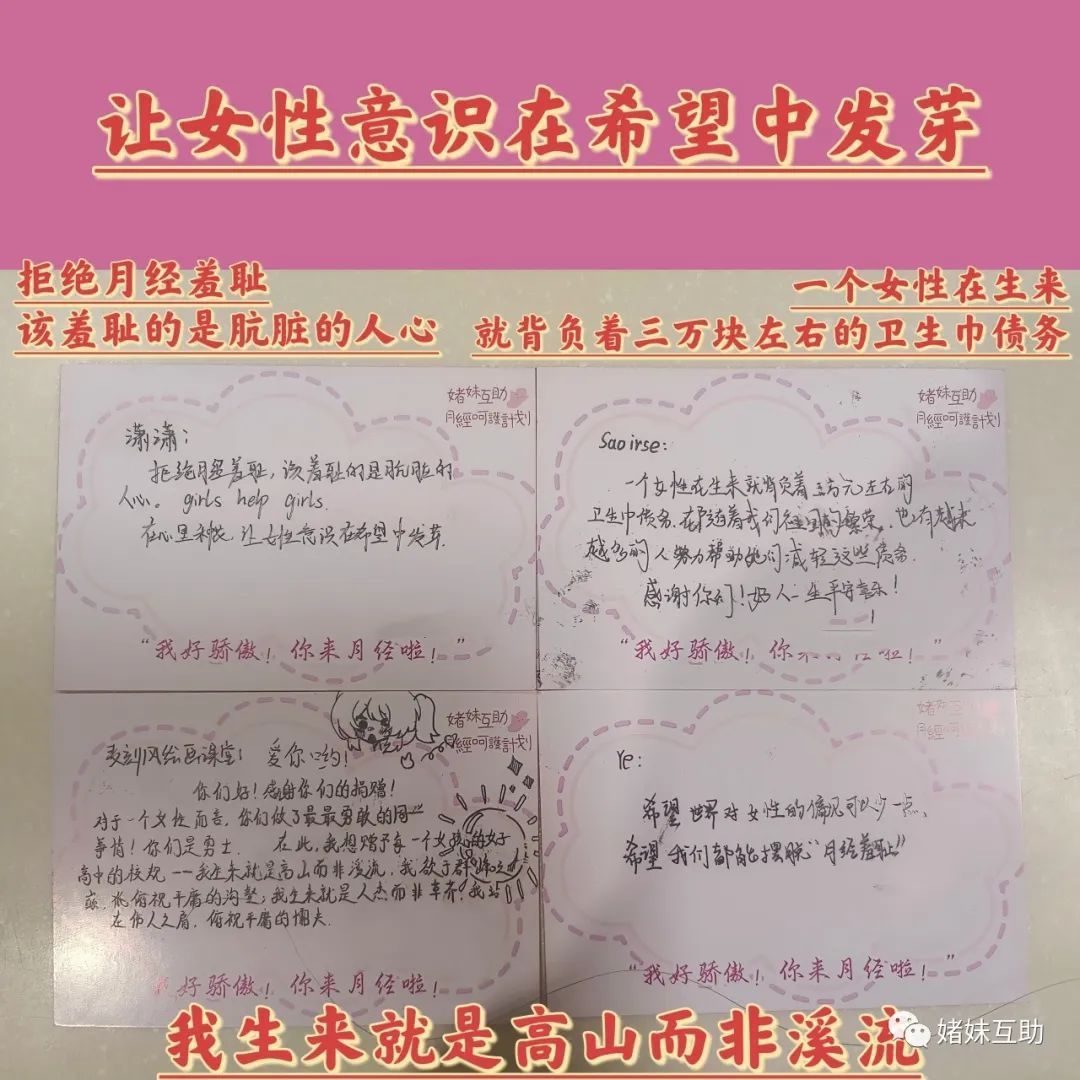 让女性意识在希望中发芽
拒绝月经羞耻
该羞耻的是肮脏的人心
一个女性在生来
就背负着三万块左右的卫生巾债务
媎妹互助
月經呵護計划
潇潇：
拒绝月经羞耻，该羞耻的是肮脏的
人心。girls help girls.
在心里种花，让女性意识在希望中发芽.
“我好骄傲！你来月经啦！”
媎妹互助
月經呵護計划
Saoirse：
一个女性在生来就背负着三万元左右的
卫生巾债务.在随着我们祖国的繁荣，也有越来
越多的人努力帮助她们减轻这些债务.
感谢你们！好人一生平安喜乐！
“我好骄傲！你来月经啦！”
媎妹互助
經呵護計划
麦刻风绘画课堂：爱你哟！
你们好！感谢你们的捐赠！
对于一个女性而言，你们做了最最勇敢的同一
事情！你们是勇士.在此，我想赠予你一个女孩的女子
高中的校规——我生来就是高山而非溪流，我欲于群峰之
巅，俯视平庸的沟壑；我生来就是人杰而非草芥，我站
在伟人之肩，俯视平庸的懦夫.
我好骄傲！你来月经啦！
媎妹互
月經呵護計划
Ye：
希望世界对女性的偏见可以少一点，
希望我们都能摆脱“月经羞耻”
“我好骄傲！你来月经啦！”
我生来就是高山而非溪流
媎妹互助